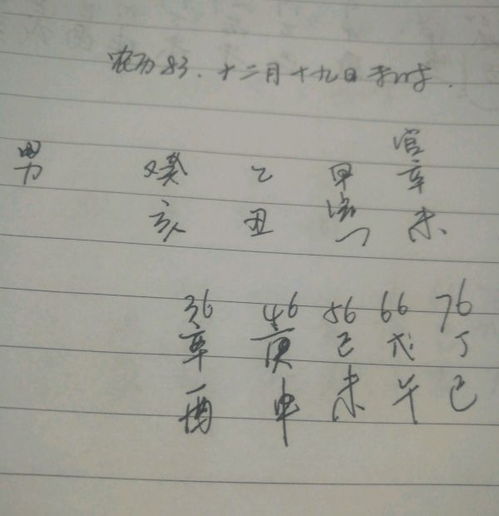 农历83.十二月十九日未时.
官
男 癸 乙 甲 辛
亥 丑 寅 未
36 46 56 66 76
辛 庚 己 戊 丁
酉 申 未 午 巳